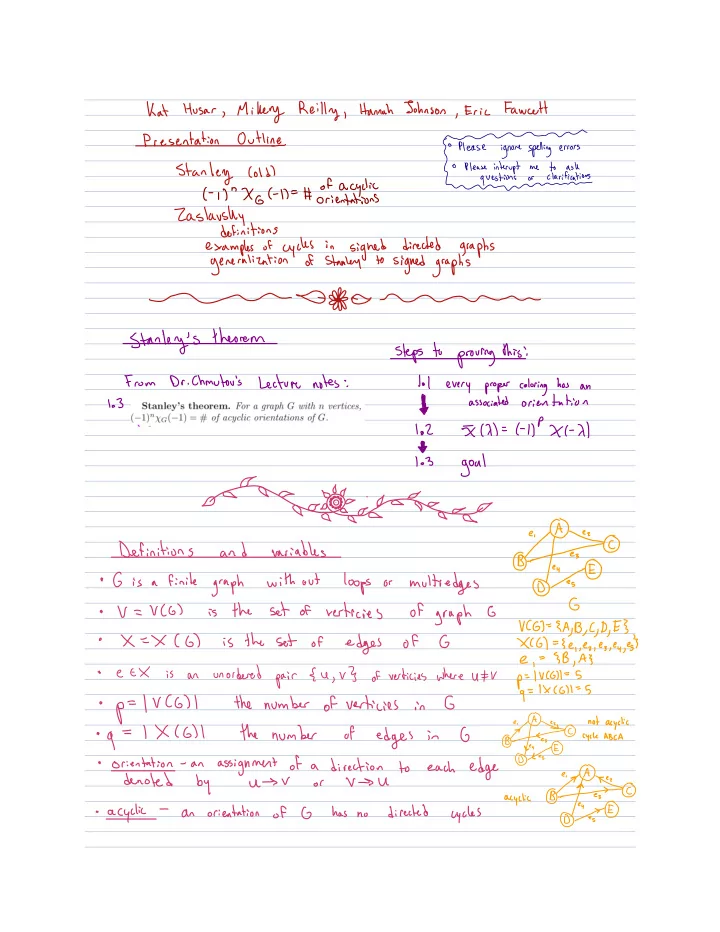 Kat Husar, Mikeny Reilly, Hannah Johnson, Eric Fawcett
Presentation Outline
◦ Please ignore speling errors
◦ Please interupt me to ask
questions or clarifications
Stanley (old)
(-1)ⁿ χ_G (-1) = # of acyclic
orientations
Zaslavsky
definitions
examples of cycles in signed directed graphs
generalization of Stanley to signed graphs
Stanley's theorem
From Dr. Chmutov's Lecture notes:
1.3 Stanley's theorem. For a graph G with n vertices,
(−1)ⁿχ_G(−1) = # of acyclic orientations of G.
Steps to proving this:
1.1 every proper coloring has an
associated orientation
1.2 χ̄(λ) = (-1)^p χ(-λ)
1.3 goal
Definitions and variables
• G is a finite graph with out loops or multiedges
• V = V(G) is the set of verticies of graph G
• X = X(G) is the set of edges of G
• e ∈ X is an unordered pair {u, v} of verticies where u ≠ v
• p = |V(G)| the number of verticies in G
• q = |X(G)| the number of edges in G
• orientation - an assignment of a direction to each edge
denoted by u → v or v → u
• acyclic - an orientation of G has no directed cycles
A
e₁ e₂
C
B e₃
e₄ E
D e₅
G
V(G) = {A,B,C,D,E}
X(G) = {e₁,e₂,e₃,e₄,e₅}
e₁ = {B,A}
p = |V(G)| = 5
q = |X(G)| = 5
e₁ A e₂ not acyclic
C cycle ABCA
B e₃
e₄ E
D e₅
e₁ A e₂
C
acyclic B e₃
e₄ E
D e₅